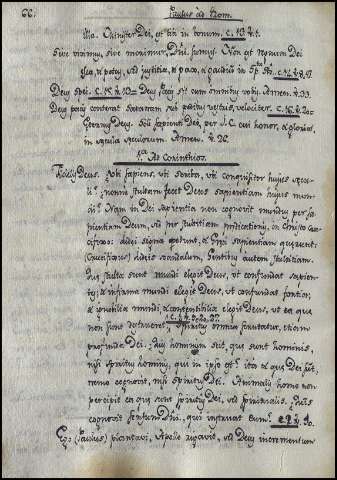 66. Paulus ad Rom.
Dei Minister est tibi in bonum. c. 13. v.
Sive vivimus, sive morimur, Dni sumus. Non est regnum Dei
esca, et potus, sed justitia, et pax, et gaudium in Sptu Sto. c. 14. v. 8. 17.
Deus spei. c. 15. v. 13. Deus pacis sit cum omnibus vobis. Amen. v. 33.
Deus pacis conterat Satanam sub pedibus velociter. c. 16. v. 20.
Deus. Soli sapienti Deo, per J. C. cui honor, et gloria,
in saecula saeculorum. Amen. v. 26.
1ma Ad Corinthios.
Fidelis Deus. Ubi sapiens, ubi scriba, ubi conquisitor hujus saecu-
li? nonne stultam fecit Deus sapientiam hujus mun-
di? Nam in Dei sapientia non cognovit mundus per sa-
pientiam Deum, sed per stultitiam praedicationis, in Christo
cifixo: Judaei signa petunt, et Graeci sapientiam quaerunt:
(Crucifixus) Judaeis scandalum, Gentibus autem stultitiam.
Quae stulta sunt mundi elegit Deus, ut confundat sapien-
tes; et infirma mundi elegit Deus, ut confundat fortia;
et ignobilia mundi, et contemptibilia elegit Deus, ut ea quae
non sunt Spiritus omnia scrutatur, etiam
profunda Dei. Quis hominum scit, quae sunt hominis,
nisi spiritus hominis, qui in ipso est? ita et quae Dei sunt,
nemo cognovit, nisi spiritus Dei. Animalis homo non
percipit ea quae sunt spiritus Dei, vel spiritualis. Quis
cognovit sensum Dni, qui instruat eum? c. 2. v.
Ego (Paulus) plantavi, Apollo rigavit, sed Deus incrementum